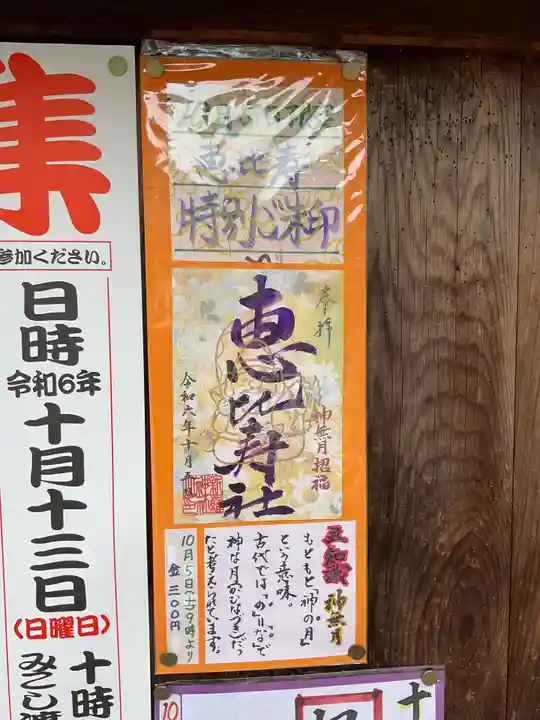 恵比寿
特別ご朱印
奉拝
恵比寿社
神無月招福
令和六年十月五
豆知識 神無月
もともと「神の月」
という意味。
古代では、「の」=「な」で
神な月(かむなづき)だっ
たと考えられています。
10月5日(土)9時より
金三〇〇円
集
参加ください。
日時
令和6年
十月十三日
(日曜日)
十時
みこし渡
10
十